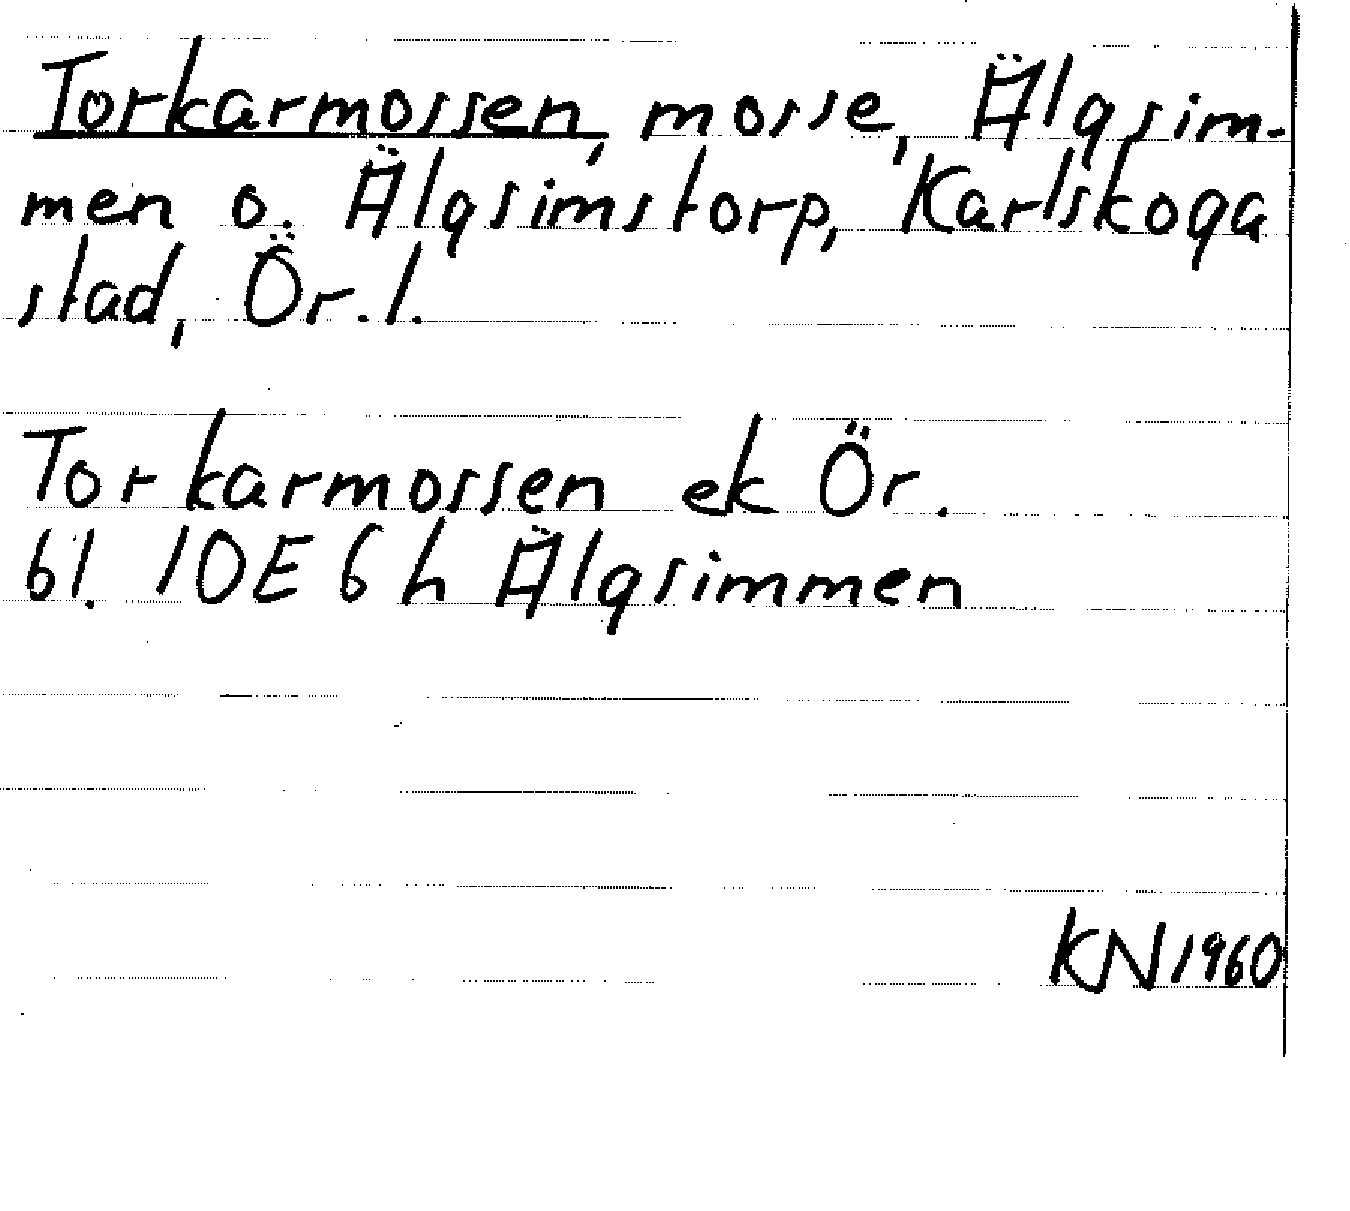 Torkarmossen, mosse, Älgsim-
men o. Älgsimstorp, Karlskoga
stad, Ör. l.
Torkarmossen ek Ör.
bl. 10E 6h Älgsimmen
KN 1960